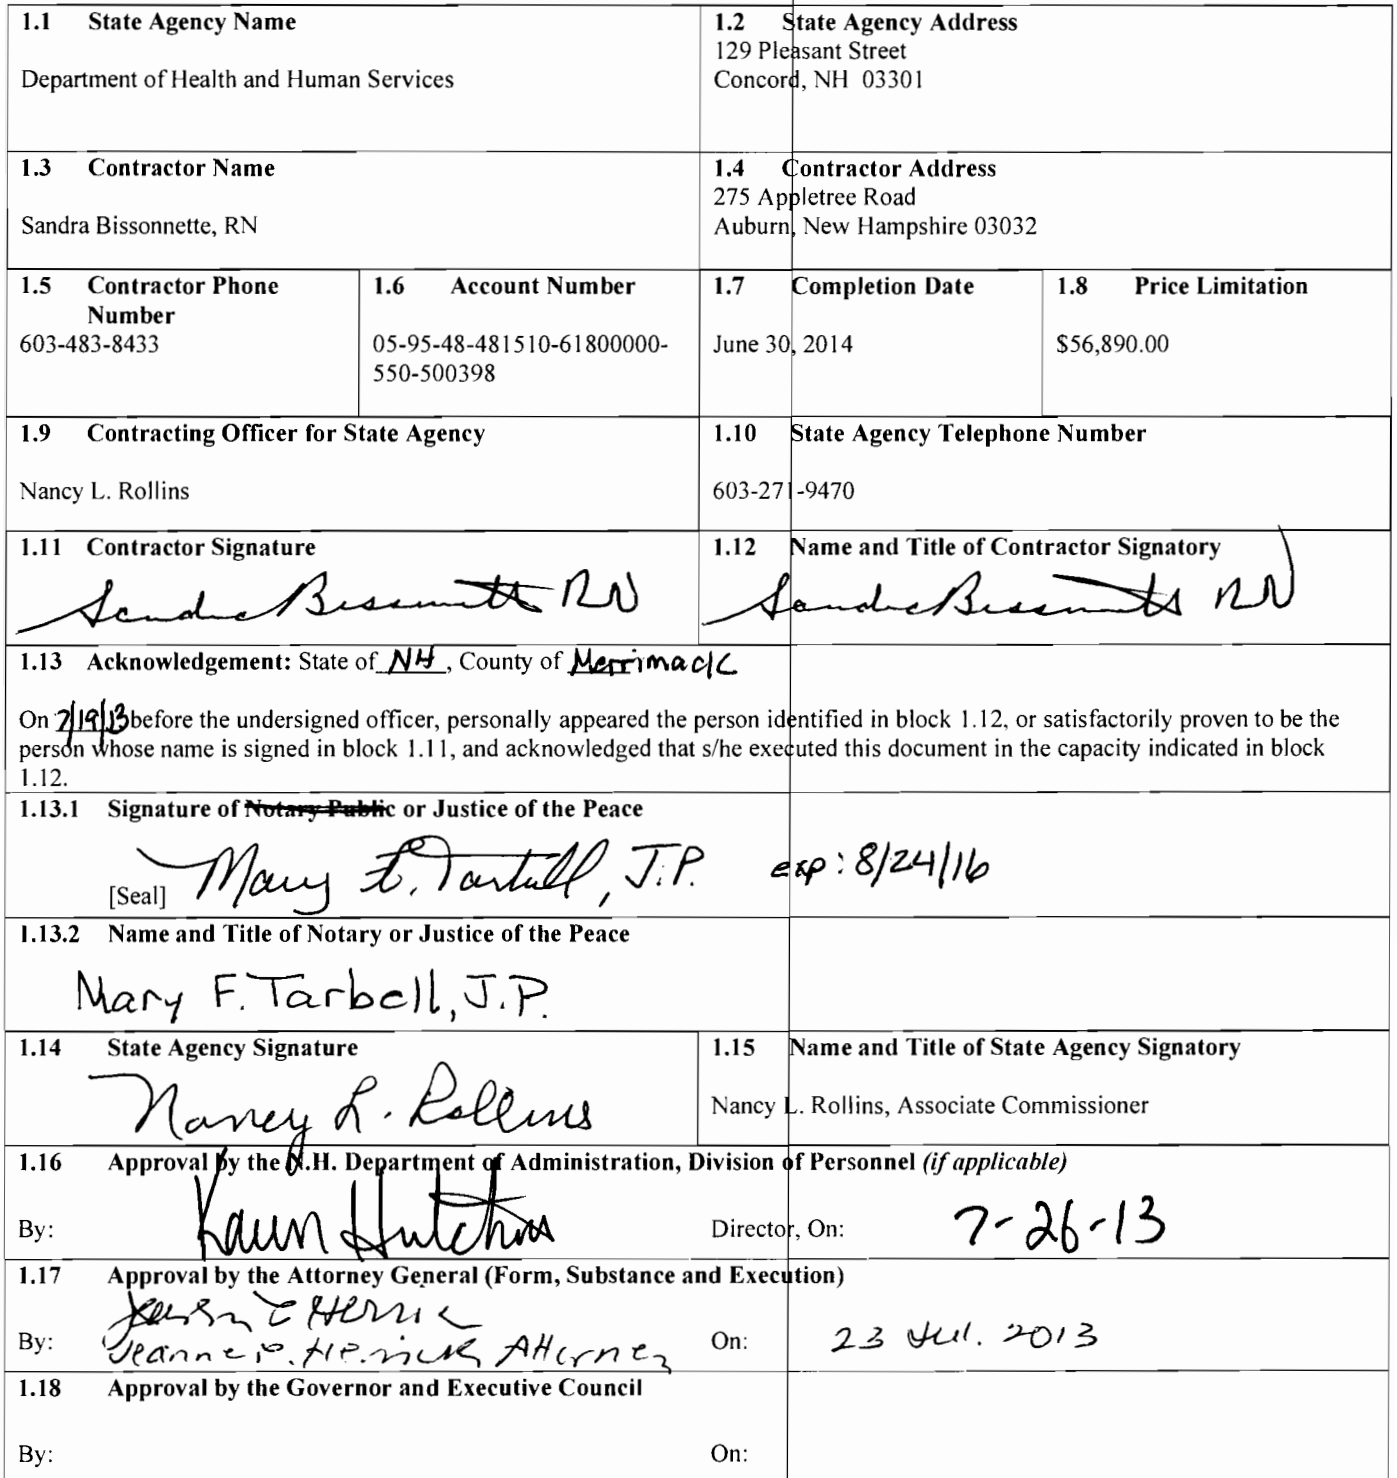 1.1 State Agency Name
Department of Health and Human Services
1.2 State Agency Address
129 Pleasant Street
Concord, NH 03301
1.3 Contractor Name
Sandra Bissonnette, RN
1.4 Contractor Address
275 Appletree Road
Auburn, New Hampshire 03032
1.5 Contractor Phone
Number
603-483-8433
1.6 Account Number
05-95-48-481510-61800000-
550-500398
1.7 Completion Date
June 30, 2014
1.8 Price Limitation
$56,890.00
1.9 Contracting Officer for State Agency
Nancy L. Rollins
1.10 State Agency Telephone Number
603-271-9470
1.11 Contractor Signature
Sandra Bissonnette RN
1.12 Name and Title of Contractor Signatory
Sandra Bissonnette RN
1.13 Acknowledgement: State of NH, County of Merrimack
On 7/19/13 before the undersigned officer, personally appeared the person identified in block 1.12, or satisfactorily proven to be the
person whose name is signed in block 1.11, and acknowledged that s/he executed this document in the capacity indicated in block
1.12.
1.13.1 Signature of Notary Public or Justice of the Peace
[Seal] Mary F. Tarbell, J.P. exp: 8/24/16
1.13.2 Name and Title of Notary or Justice of the Peace
Mary F. Tarbell, J.P.
1.14 State Agency Signature
Nancy L. Rollins
1.15 Name and Title of State Agency Signatory
Nancy L. Rollins, Associate Commissioner
1.16 Approval by the N.H. Department of Administration, Division of Personnel (if applicable)
By: Karen Hutchins Director, On: 7-26-13
1.17 Approval by the Attorney General (Form, Substance and Execution)
By: Jeanne P. Herrick Attorney On: 23 Jul. 2013
1.18 Approval by the Governor and Executive Council
By: On: